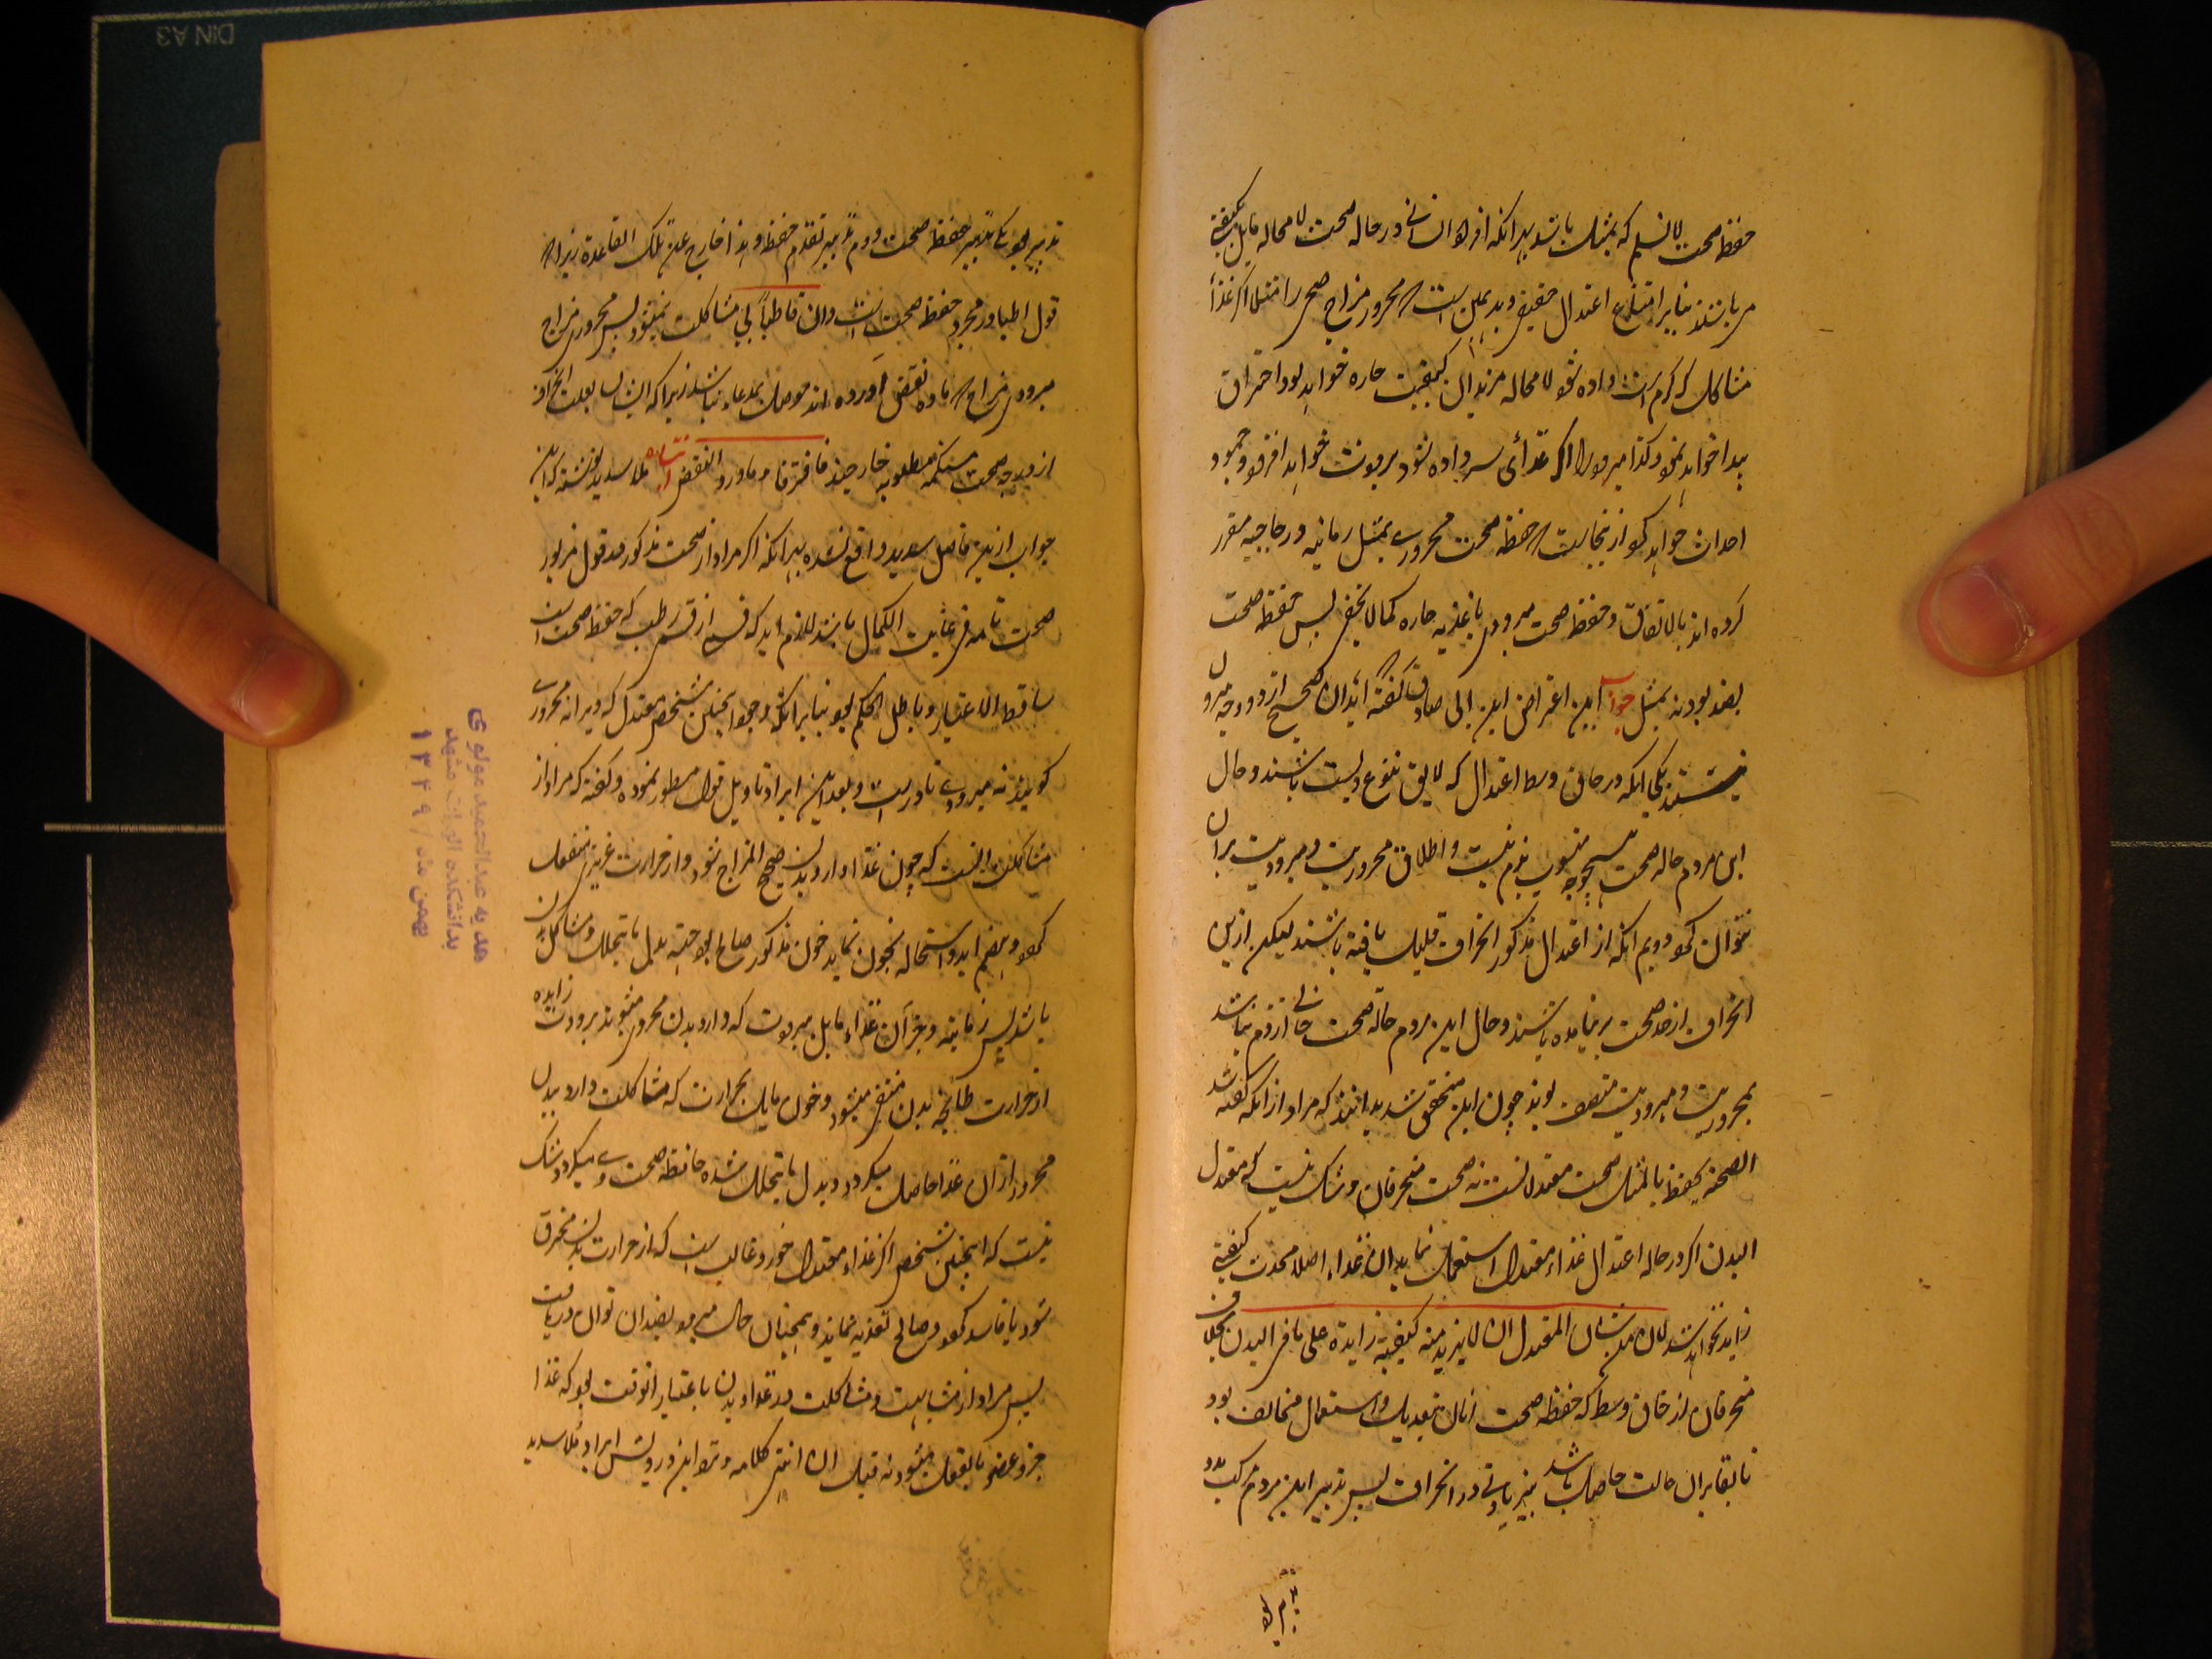 حفظ صحت لا نسلم که بمثل باشد بدانکه افراد انسانی در حاله صحت لا محاله مایل بکیفیتی
می باشند بنا بر امتناع اعتدال حقیقی و بدیهی است که محرور مزاج صحی را مثلا اگر غذاء
مشاکل که گرم است داده شود لا محاله مزید آن کیفیت حاره خواهد بود و احتراق
پیدا خواهد نمود و کذا مبرود را اگر غذائی سرد داده شود برودت خواهد افزود و جمود
احداث خواهد کرد از اینجاست که حفظ صحت محروری بمثل رمانیه و زجاجیه مقرر
کرده اند بالاتفاق و حفظ صحت مبرودی باغذیه حاره کما لا یخفی پس حفظ صحت
بضد بود نه بمثل جواب این اعتراض ابن ابی صادق گفته که ابدان صحیح از دو وجه بیرون
نیستند یکی آنکه در حاق وسط اعتدال که لایق بنوع ویست باشند و حال
این مردم حاله صحت بهیچوجه منسوب بذم نیست و اطلاق محروریت و مبرودیت بران
نتوان کرد دویم آنکه از اعتدال مذکور انحراف قلیل یافته باشند لیکن ازین
انحراف از حد صحت برنیامده باشند و حال این مردم حاله صحت خالی از ذم نباشد
بمحروریت و مبرودیت متصف بوند چون این متحقق شد بدانند که مراد از آنکه گفته شد
الصحة یحفظ بالمثل صحت معتدلانست نه صحت منحرفان و شک نیست که معتدل
البدن اگر در حاله اعتدال غذاء معتدل استعمال نماید آن غذاء اصلا محدث کیفیتی
زاید نخواهد شد لان من شان المعتدل ان لا یزید منه کیفیة زایدة علی ما فی البدن بخلاف
منحرفان از حاق وسط که حفظ صحت آنان بتعدیل و استعمال مخالف بود
تا بقا بران حالت حاصل باشد بی زیادتی در انحراف پس تدبیر این مردم مرکب بدو
تدبیر بود یکی تدبیر حفظ صحت دوم تدبیر تقدم حفظ و هذا خارج عن تلک القاعدة زیرا که
قول اطبا در مجرد حفظ صحت است و آن قاطبةً بی مشاکلت نمیشود پس محرور مزاج
مبرودی مزاج که ماده نقض آورده اند موصل بمدعا نباشد زیرا که ایشان بعلت انحراف
از درجه صحت مستکمه مطلوبه خارجند فافترقا و ما ورد النقض ملا سدید نوشته که این
جواب ازین فاضل سدید واقع نشده بدانکه اگر مراد از صحت مذکور در قول مزبور
صحت تامه فی غایت الکمال باشد لازم آید که قسمی از قسم طب که حفظ صحت است
ساقط الاعتبار و باطل الحکم بود بنا برانکه وجود اینچنین شخص معتدل که ویرا نه محروری
گویند نه مبرودی نادر است و بعد ازین ایراد تاویل قول مسطور نموده و گفته که مراد از
مشاکلت آنست که چون غذا وارد بدن صحیح المزاج شود و از حرارت غریزی منفعل
گردد و هضم یابد و استحاله بخون نماید خون مذکور صالح بود جهت بدل ما یتحلل و مشاکل بدن
باشد پس رمانیه و غیر آن غذاء مایل ببرودت که وارد بدن محروری میشوند برودت زایده
از حرارت طابخه بدن متغیر میشود و خون مایل بحرارت که مشاکلت دارد ببدن
محرور ازان غذا حاصل میگردد و بدل ما یتحلل شده حافظ صحت وی میگردد و شک
نیست که اینچنین شخص اگر غذاء معتدل خورد غالب است که از حرارت بدن محترق
شود یا فاسد گردد و صالح تغذیه نماند و همچنان حال مبرود بضد آن توان دریافت
پس مراد از مشابهت و مشاکلت در غذا و بدن باعتبار آنوقت بود که غذا
جزو عضو بالفعل میشود نه قبل ازان انتهی کلامه و تواند در ویست ایراد ملا سدید
تدبیر بود
هدیه عبدالحمید مولوی
بدانشکده الهیات مشهد
بهمن ماه / ۱۳۴۹
DIN A3